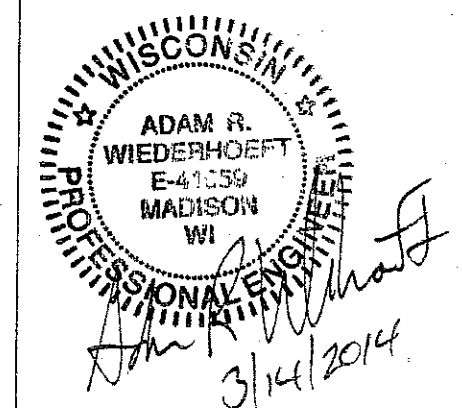 WISCONSIN
ADAM R.
WIEDERHOEFT
MADISON
WI
PROFESSIONAL ENGINEER
Adam R Wiederhoeft
3/14/2014